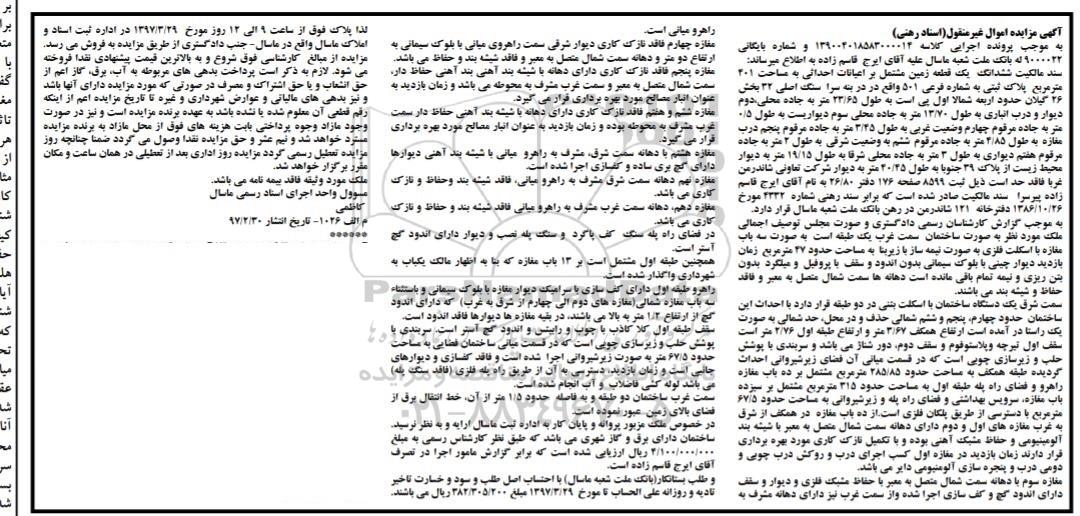 آگهی مزایده اموال غیرمنقول(اسناد رهنی)
به موجب پرونده اجرایی کلاسه ۱۳۹۰۰۴۰۱۸۵۸۳۰۰۰۰۱۲ و شماره بایگانی
۹۰۰۰۰۲۲ له بانک ملت شعبه ماسال علیه آقای ایرج قاسم زاده به اطلاع میرساند:
سند مالکیت ششدانگ یک قطعه زمین مشتمل بر اعیانات احداثی به مساحت ۴۰۱
مترمربع پلاک ثبتی به شماره فرعی ۵۰۱ واقع در در بنه سرا سنگ اصلی ۳۲ بخش
۲۶ گیلان حدود اربعه شمالا اول پی است به طول ۲۳/۶۵ متر به جاده محلی،دوم
دیوار و درب انباری به طول ۱۳/۷۰ متر به جاده محلی سوم دیواریست به طول ۰/۵
متر به جاده مرقوم چهارم وضعیت غربی به طول ۳/۴۵ متر به جاده مرقوم پنجم درب
مغازه به طول ۲/۸۵ متر به جاده مرقوم ششم به وضعیت شرقی به طول ۲ متر به جاده
مرقوم هفتم دیواری به طول ۳ متر به جاده محلی شرقا به طول ۱۹/۱۵ متر به دیوار
محیط زیست از پلاک ۳۹ جنوبا به طول ۴۰/۴۵ متر به دیوار شرکت تعاونی شاندرمن
غربا فاقد حد است ذیل ثبت ۸۵۹۹ صفحه ۱۷۶ دفتر ۲۶/۸۰ به نام آقای ایرج قاسم
زاده پیرسرا سند مالکیت صادر شده است که برابر سند رهنی شماره ۴۳۳۲ مورخ
۱۳۸۶/۱۰/۲۶ دفترخانه ۱۲۱ شاندرمن در رهن بانک ملت شعبه ماسال قرار دارد.
به موجب گزارش کارشناسان رسمی دادگستری و صورت مجلس توصیف اجمالی
ملک مورد نظر به صورت ساختمان سمت غرب یک طبقه است به صورت سه باب
مغازه با اسکلت فلزی به صورت نیمه ساز با زیربنا به مساحت حدود ۴۷ مترمربع زمان
بازدید دیوار چینی با بلوک سیمانی بدون اندود و سقف با پروفیل و میلگرد بدون
بتن ریزی و نیمه تمام باقی مانده است دهانه ها سمت شمال متصل به معبر و فاقد
حفاظ و شیشه بند می باشند.
سمت شرق یک دستگاه ساختمان با اسکلت بتنی در دو طبقه قرار دارد با احداث این
ساختمان حدود چهارم، پنجم و ششم شمالی حذف و در محل، حد شمالی به صورت
یک راستا در آمده است ارتفاع همکف ۳/۶۷ متر و ارتفاع طبقه اول ۲/۷۶ متر است
سقف اول تیرچه ویلاستوفوم و سقف دوم، دور شناژ می باشد و سربندی با پوشش
حلب و زیرسازی چوبی است که در قسمت میانی آن فضای زیرشیروانی احداث
گردیده طبقه همکف به مساحت حدود ۲۸۵/۸۵ مترمربع مشتمل بر ده باب مغازه
راهرو و فضای راه پله طبقه اول به مساحت حدود ۳۱۵ مترمربع مشتمل بر سیزده
باب مغازه، سرویس بهداشتی و فضای راه پله و زیرشیروانی به مساحت حدود ۶۷/۵
مترمربع با دسترسی از طریق پلکان فلزی است.از ده باب مغازه در همکف از شرق
به غرب مغازه های اول و دوم دارای دهانه سمت شمال متصل به معبر با شیشه بند
آلومینیومی و حفاظ مشبک آهنی بوده و با تکمیل نازک کاری مورد بهره برداری
قرار دارند زمان بازدید در مغازه اول کسب اجرای درب و روکش درب چوبی و
دومی درب و پنجره سازی آلومینیومی دایر می باشد.
مغازه سوم با دهانه سمت شمال متصل به معبر با حفاظ مشبک فلزی و دیوار و سقف
دارای اندود گچ و کف سازی اجرا شده واز سمت غرب نیز دارای دهانه مشرف به
راهرو میانی است.
مغازه چهارم فاقد نازک کاری دیوار شرقی سمت راهروی میانی با بلوک سیمانی به
ارتفاع دو متر و دهانه سمت شمال متصل به معبر و فاقد شیشه بند و حفاظ می باشد.
مغازه پنجم فاقد نازک کاری دارای دهانه با شیشه بند آهنی بند آهنی حفاظ دار،
سمت شمال متصل به معبر و سمت غرب مشرف به محوطه می باشد و زمان بازدید به
عنوان انبار مصالح مورد بهره برداری قرار می گیرد.
مغازه ششم و هفتم فاقد نازک کاری دارای دهانه با شیشه بند آهنی حفاظ دار سمت
غرب مشرف به محوطه بوده و زمان بازدید به عنوان انبار مصالح مورد بهره برداری
قرار می گیرد.
مغازه هشتم با دهانه سمت شرق، مشرف به راهرو میانی با شیشه بند آهنی دیوارها
دارای گچ بری ساده و کفسازی اجرا شده است.
مغازه نهم دهانه سمت شرق مشرف به راهرو میانی، فاقد شیشه بند وحفاظ و نازک
کاری می باشد.
مغازه دهم، دهانه سمت غرب مشرف به راهرو میانی فاقد شیشه بند و حفاظ و نازک
کاری می باشد.
در فضای راه پله سنگ کف پاگرد و سنگ پله نصب و دیوار دارای اندود گچ
آستر است.
همچنین طبقه اول مشتمل است بر ۱۳ باب مغازه که بنا به اظهار مالک یکباب به
شهرداری واگذار شده است.
راهرو طبقه اول دارای کف سازی با سرامیک دیوار مغازه با بلوک سیمانی و باستثناء
سه باب مغازه شمالی(مغازه های دوم الی چهارم از شرق به غرب) که دارای اندود
گچ از ارتفاع ۱/۲ متر به بالا می باشند، در بقیه مغازه ها دیوارها فاقد اندود است.
سقف طبقه اول کلا کاذب با چوب و رابیتس و اندود گچ آستر است. سربندی با
پوشش حلب و زیرسازی چوبی است که در قسمت میانی ساختمان فضایی به مساحت
حدود ۶۷/۵ متر به صورت زیرشیروانی اجرا شده است و فاقد کفسازی و دیوارهای
جانبی است و زمان بازدید، دسترسی به آن از طریق راه پله فلزی (فاقد سنگ پله)
می باشد لوله کشی فاضلاب و آب انجام شده است.
سمت غرب ساختمان دو طبقه و به فاصله حدود ۱/۵ متر از آن، خط انتقال برق از
فضای بالای زمین عبور نموده است.
در خصوص ملک مزبور پروانه و پایان کار به اداره ثبت ماسال ارایه و به نظر نرسید.
ساختمان دارای برق و گاز شهری می باشد که طبق نظر کارشناس رسمی به مبلغ
۴/۱۰۰/۰۰۰/۰۰۰ ریال ارزیابی شده است که برابر گزارش مامور اجرا در تصرف
آقای ایرج قاسم زاده است.
و طلب بستانکار(بانک ملت شعبه ماسال) با احتساب اصل طلب و سود و خسارت تاخیر
تادیه و روزانه علی الحساب تا مورخ ۱۳۹۷/۳/۲۹ مبلغ ۳۸۲/۳۰۵/۲۰۰ ریال می باشند.
لذا پلاک فوق از ساعت ۹ الی ۱۲ روز مورخ ۱۳۹۷/۳/۲۹ در اداره ثبت اسناد و
املاک ماسال واقع در ماسال- جنب دادگستری از طریق مزایده به فروش می رسد.
مزایده از مبالغ کارشناسی فوق شروع و به بالاترین قیمت پیشنهادی نقدا فروخته
می شود. لازم به ذکر است پرداخت بدهی های مربوطه به آب، برق، گاز اعم از
حق انشعاب و یا حق اشتراک و مصرف در صورتی که مورد مزایده دارای آنها باشد
و نیز بدهی های مالیاتی و عوارض شهرداری و غیره تا تاریخ مزایده اعم از اینکه
رقم قطعی آن معلوم شده یا نشده باشد به عهده برنده مزایده است و نیز در صورت
وجود مازاد وجوه پرداختی بابت هزینه های فوق از محل مازاد به برنده مزایده
مسترد خواهد شد و نیم عشر و حق مزایده نقدا وصول می گردد ضمنا چنانچه روز
مزایده تعطیل رسمی گردد مزایده روز اداری بعد از تعطیلی در همان ساعت و مکان
مقرر برگزار خواهد شد.
ملک مورد وثیقه فاقد بیمه نامه می باشد.
مسوول واحد اجرای اسناد رسمی ماسال
کاظمی
م الف ۱۰۲۶- تاریخ انتشار ۹۷/۲/۳۰
******
۰۲۱-۸۸۳۴۹۶۷۰